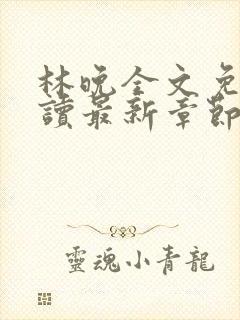 林晚全文免
讀最新章節
靈魂小青龍